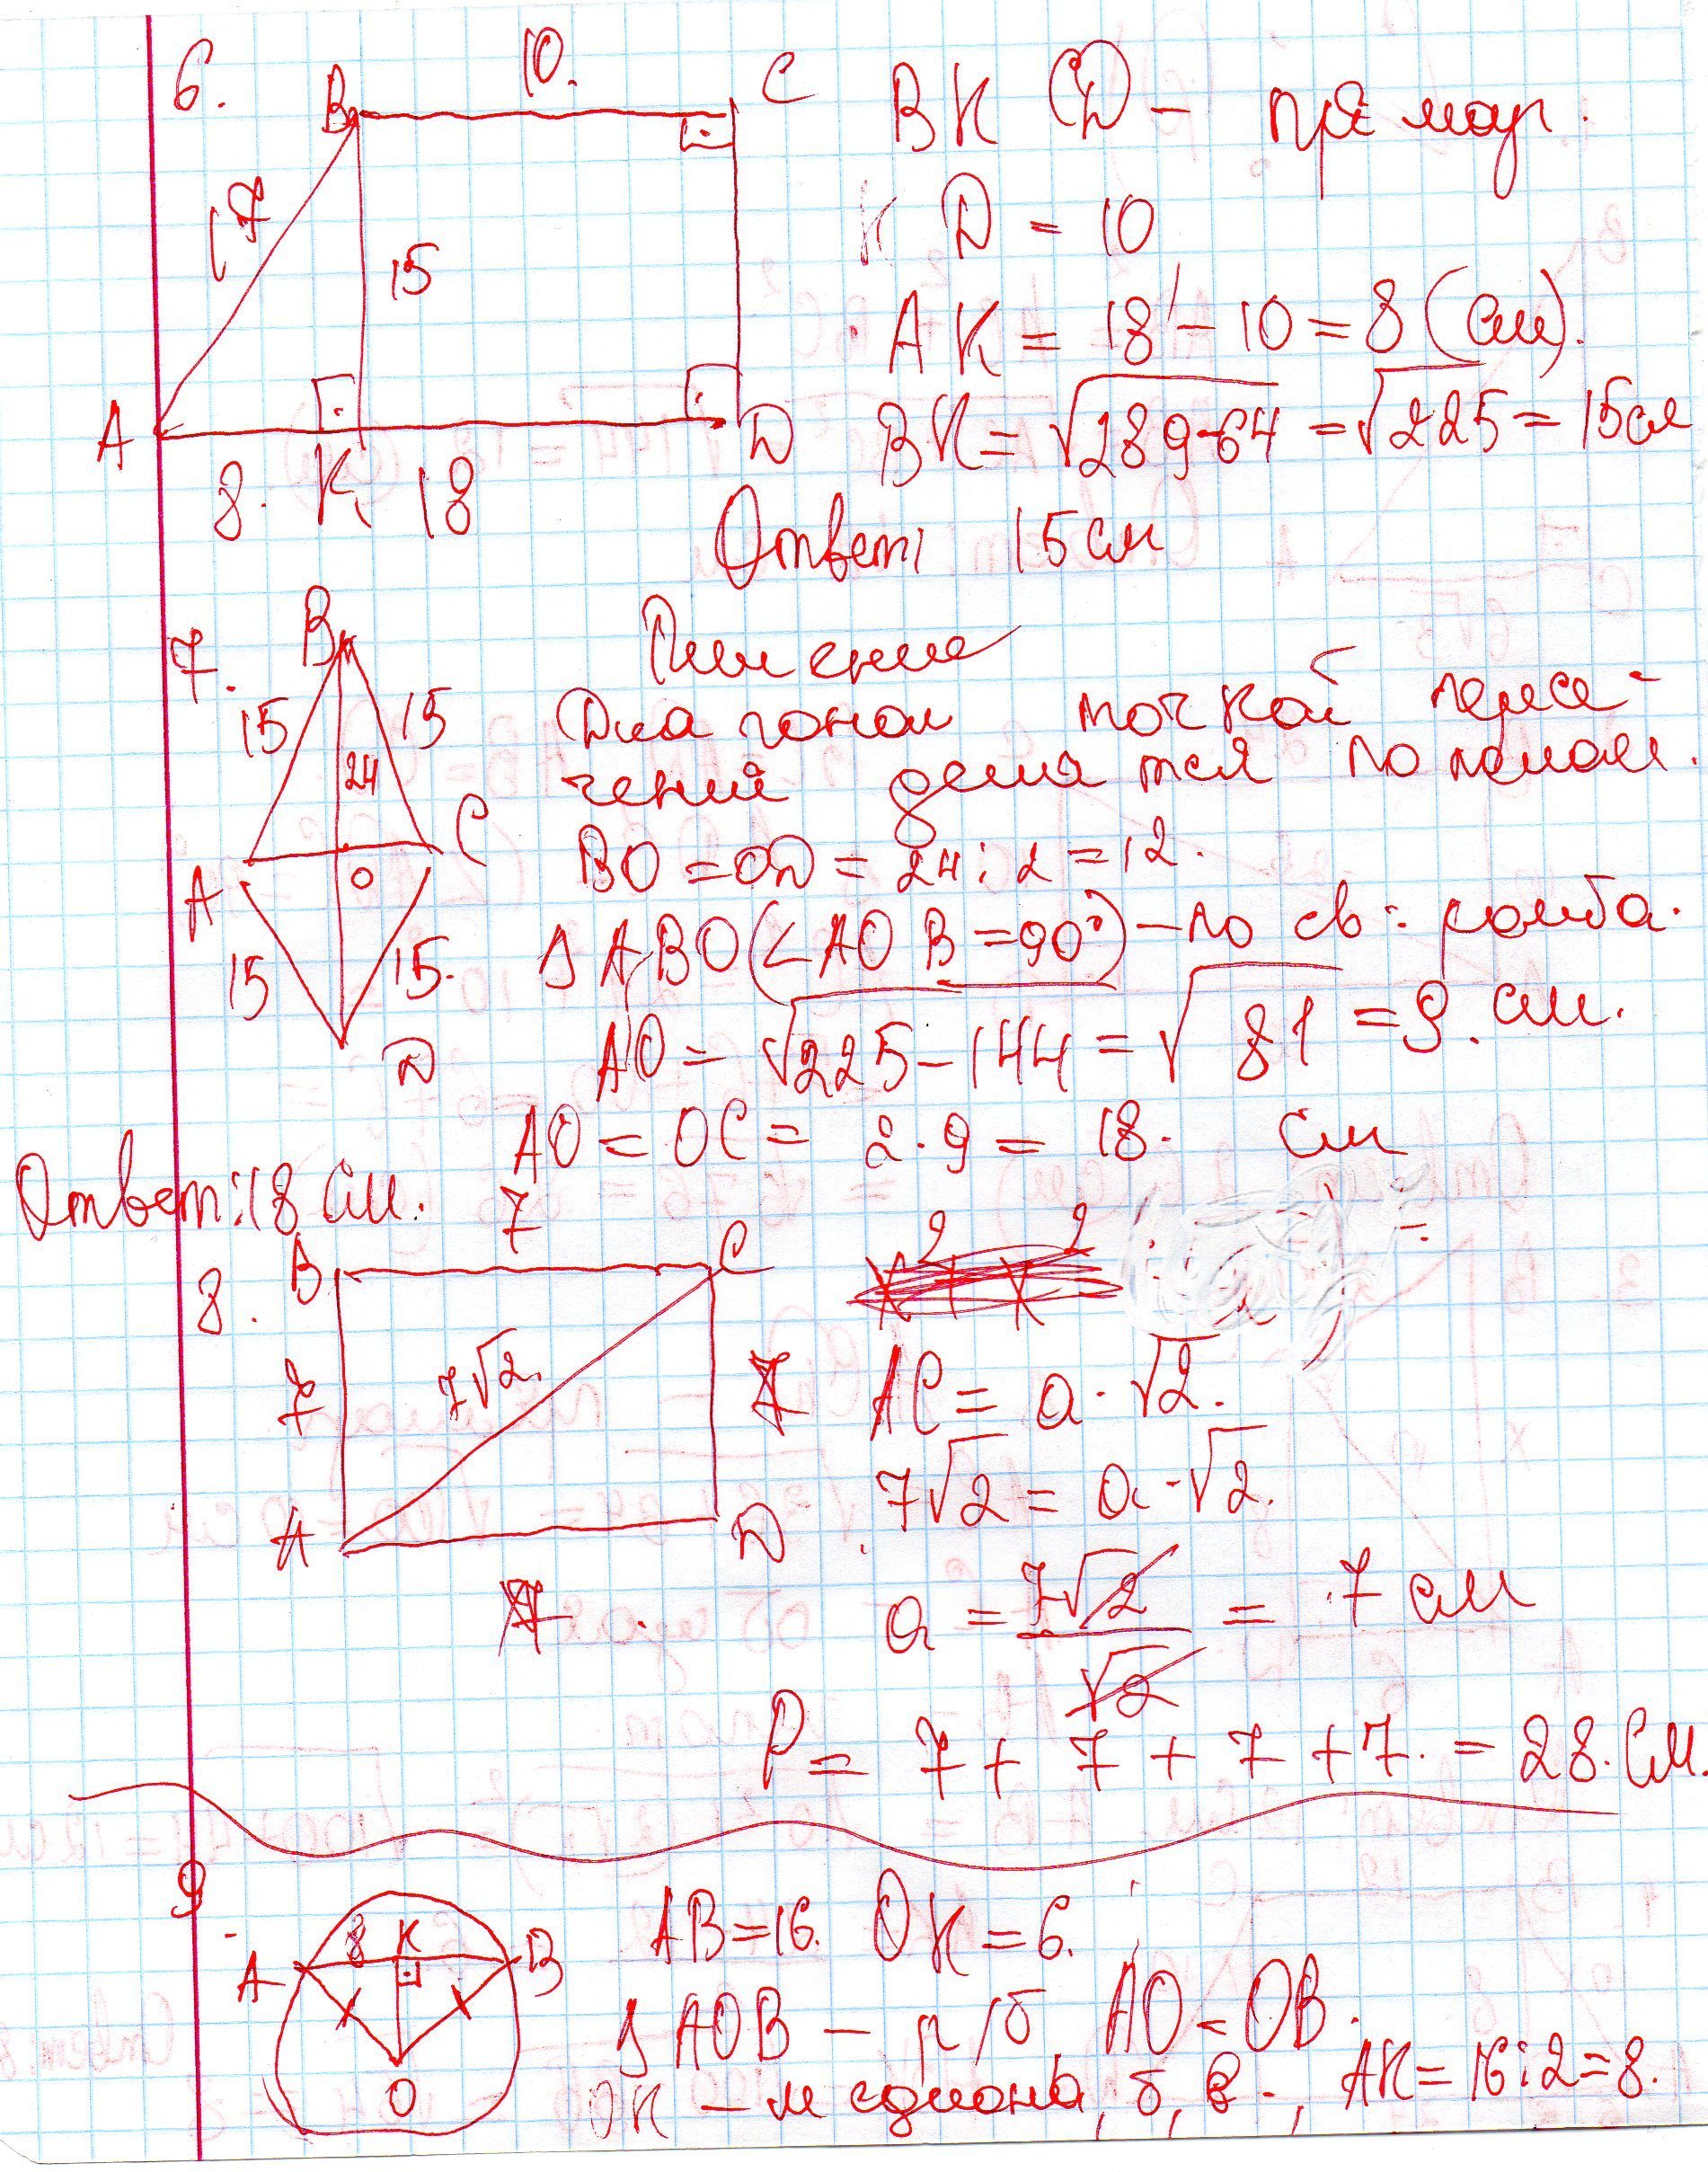 6.
10.
B C
17
15
A D
8. K 18
BKCD – прямоуг.
KD = 10
AK = 18 - 10 = 8 (см).
BK = √289-64 = √225 = 15см
Ответ: 15 см
7.
B
15 15
24
A O C
15 15.
D
Решение
Диагонали точкой пересе-
чений делятся пополам.
BO = OD = 24 : 2 = 12.
Δ ABO (∠AOB = 90°) – по св: ромба.
AO = √225 - 144 = √81 = 9. см.
AO = OC = 2 · 9 = 18. см
Ответ: 18 см.
8.
7
B C
7 7√2 7
A D
7
AC = a · √2.
7√2 = a · √2.
a = 7√2 / √2 = 7 см
P = 7 + 7 + 7 + 7. = 28. см.
9
8 K
A B
O
AB = 16. OK = 6.
Δ AOB – р/б, AO = OB.
OK – медиана, б, в., AK = 16 : 2 = 8.